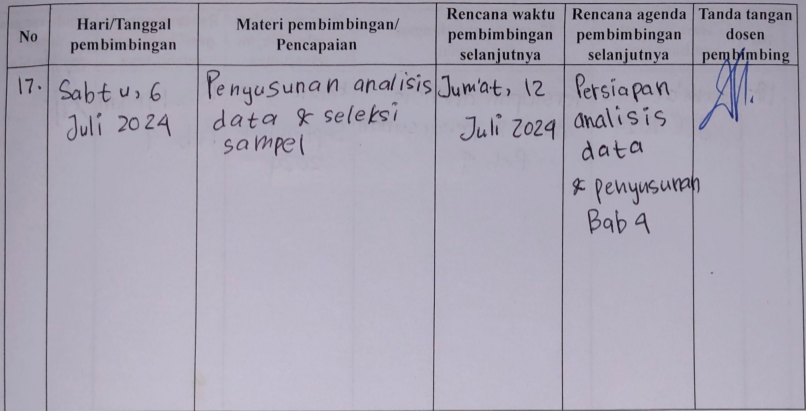 No
Hari/Tanggal
pembimbingan
Materi pembimbingan/
Pencapaian
Rencana waktu
pembimbingan
selanjutnya
Rencana agenda
pembimbingan
selanjutnya
Tanda tangan
dosen
pembimbing
17.
Sabtu, 6
Juli 2024
Penyusunan analisis
data & seleksi
sampel
Jum'at, 12
Juli 2024
Persiapan
analisis
data
& penyusunan
Bab 4